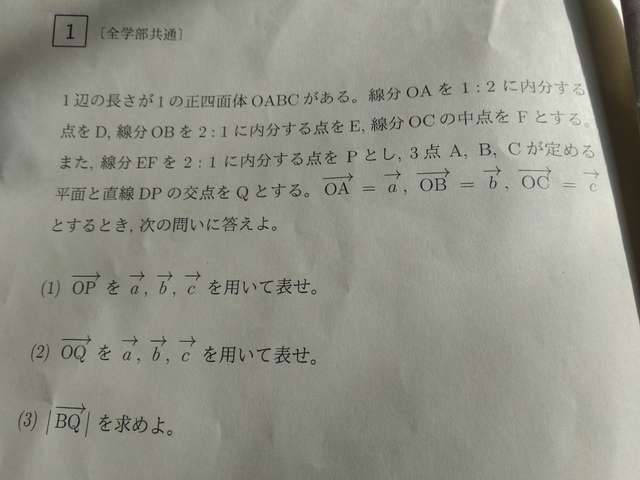 1 [全学部共通]
1辺の長さが1の正四面体OABCがある。線分OAを1:2に内分する
点をD, 線分OBを2:1に内分する点をE, 線分OCの中点をFとする。
また, 線分EFを2:1に内分する点をPとし, 3点A, B, Cが定める
平面と直線DPの交点をQとする。$\overrightarrow{OA} = \vec{a}$, $\overrightarrow{OB} = \vec{b}$, $\overrightarrow{OC} = \vec{c}$
とするとき, 次の問いに答えよ。
(1) $\overrightarrow{OP}$ を $\vec{a}$, $\vec{b}$, $\vec{c}$ を用いて表せ。
(2) $\overrightarrow{OQ}$ を $\vec{a}$, $\vec{b}$, $\vec{c}$ を用いて表せ。
(3) $|\overrightarrow{BQ}|$ を求めよ。